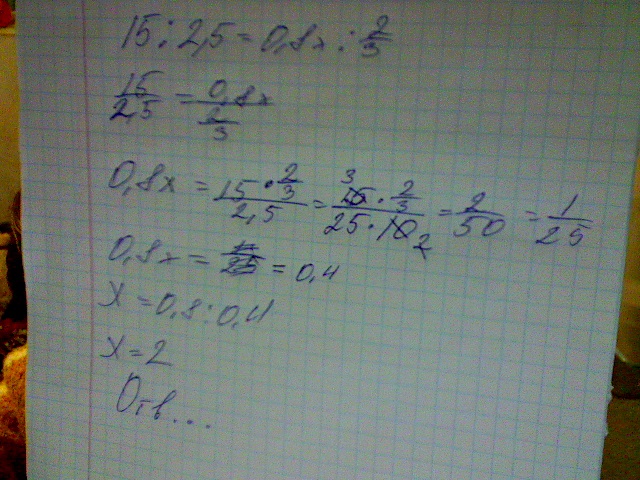 15 : 2,5 = 0,8x : 2/3
15/2,5 = 0,8x/(2/3)
0,8x = (15 · 2/3)/2,5 = (3 15 · 2/3)/(25 · 10 2) = 2/50 = 1/25
0,8x = = 0,4
x = 0,8 : 0,4
x = 2
Отв...